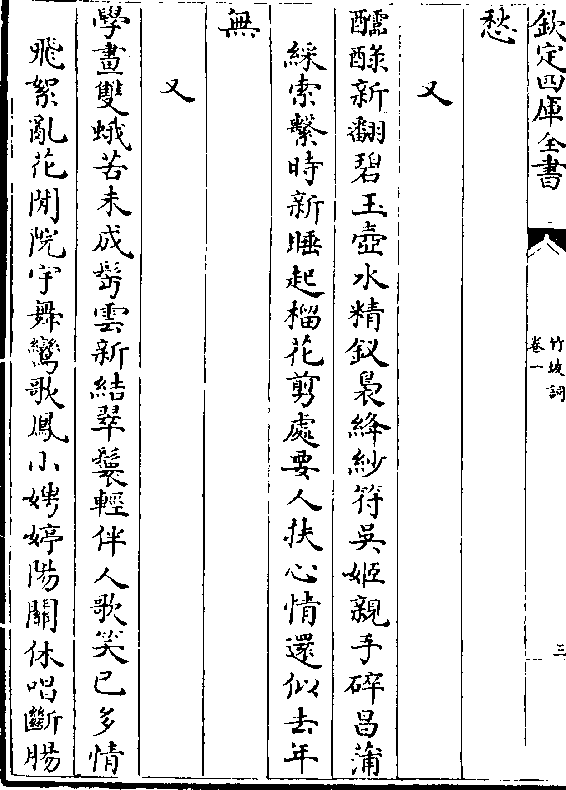 欽定四庫全書
竹坡詞
卷一
三
愁
又
醹醁新翻碧玉壺水精釵裊絳紗符吳姬親手碎昌蒲
綵索繫時新睡起榴花剪處要人扶心情還似去年
無
又
學畫雙蛾苦未成髩雲新結翠鬟輕伴人歌笑已多情
飛絮亂花閒院宇舞鸞歌鳳小娉婷陽關休唱斷腸